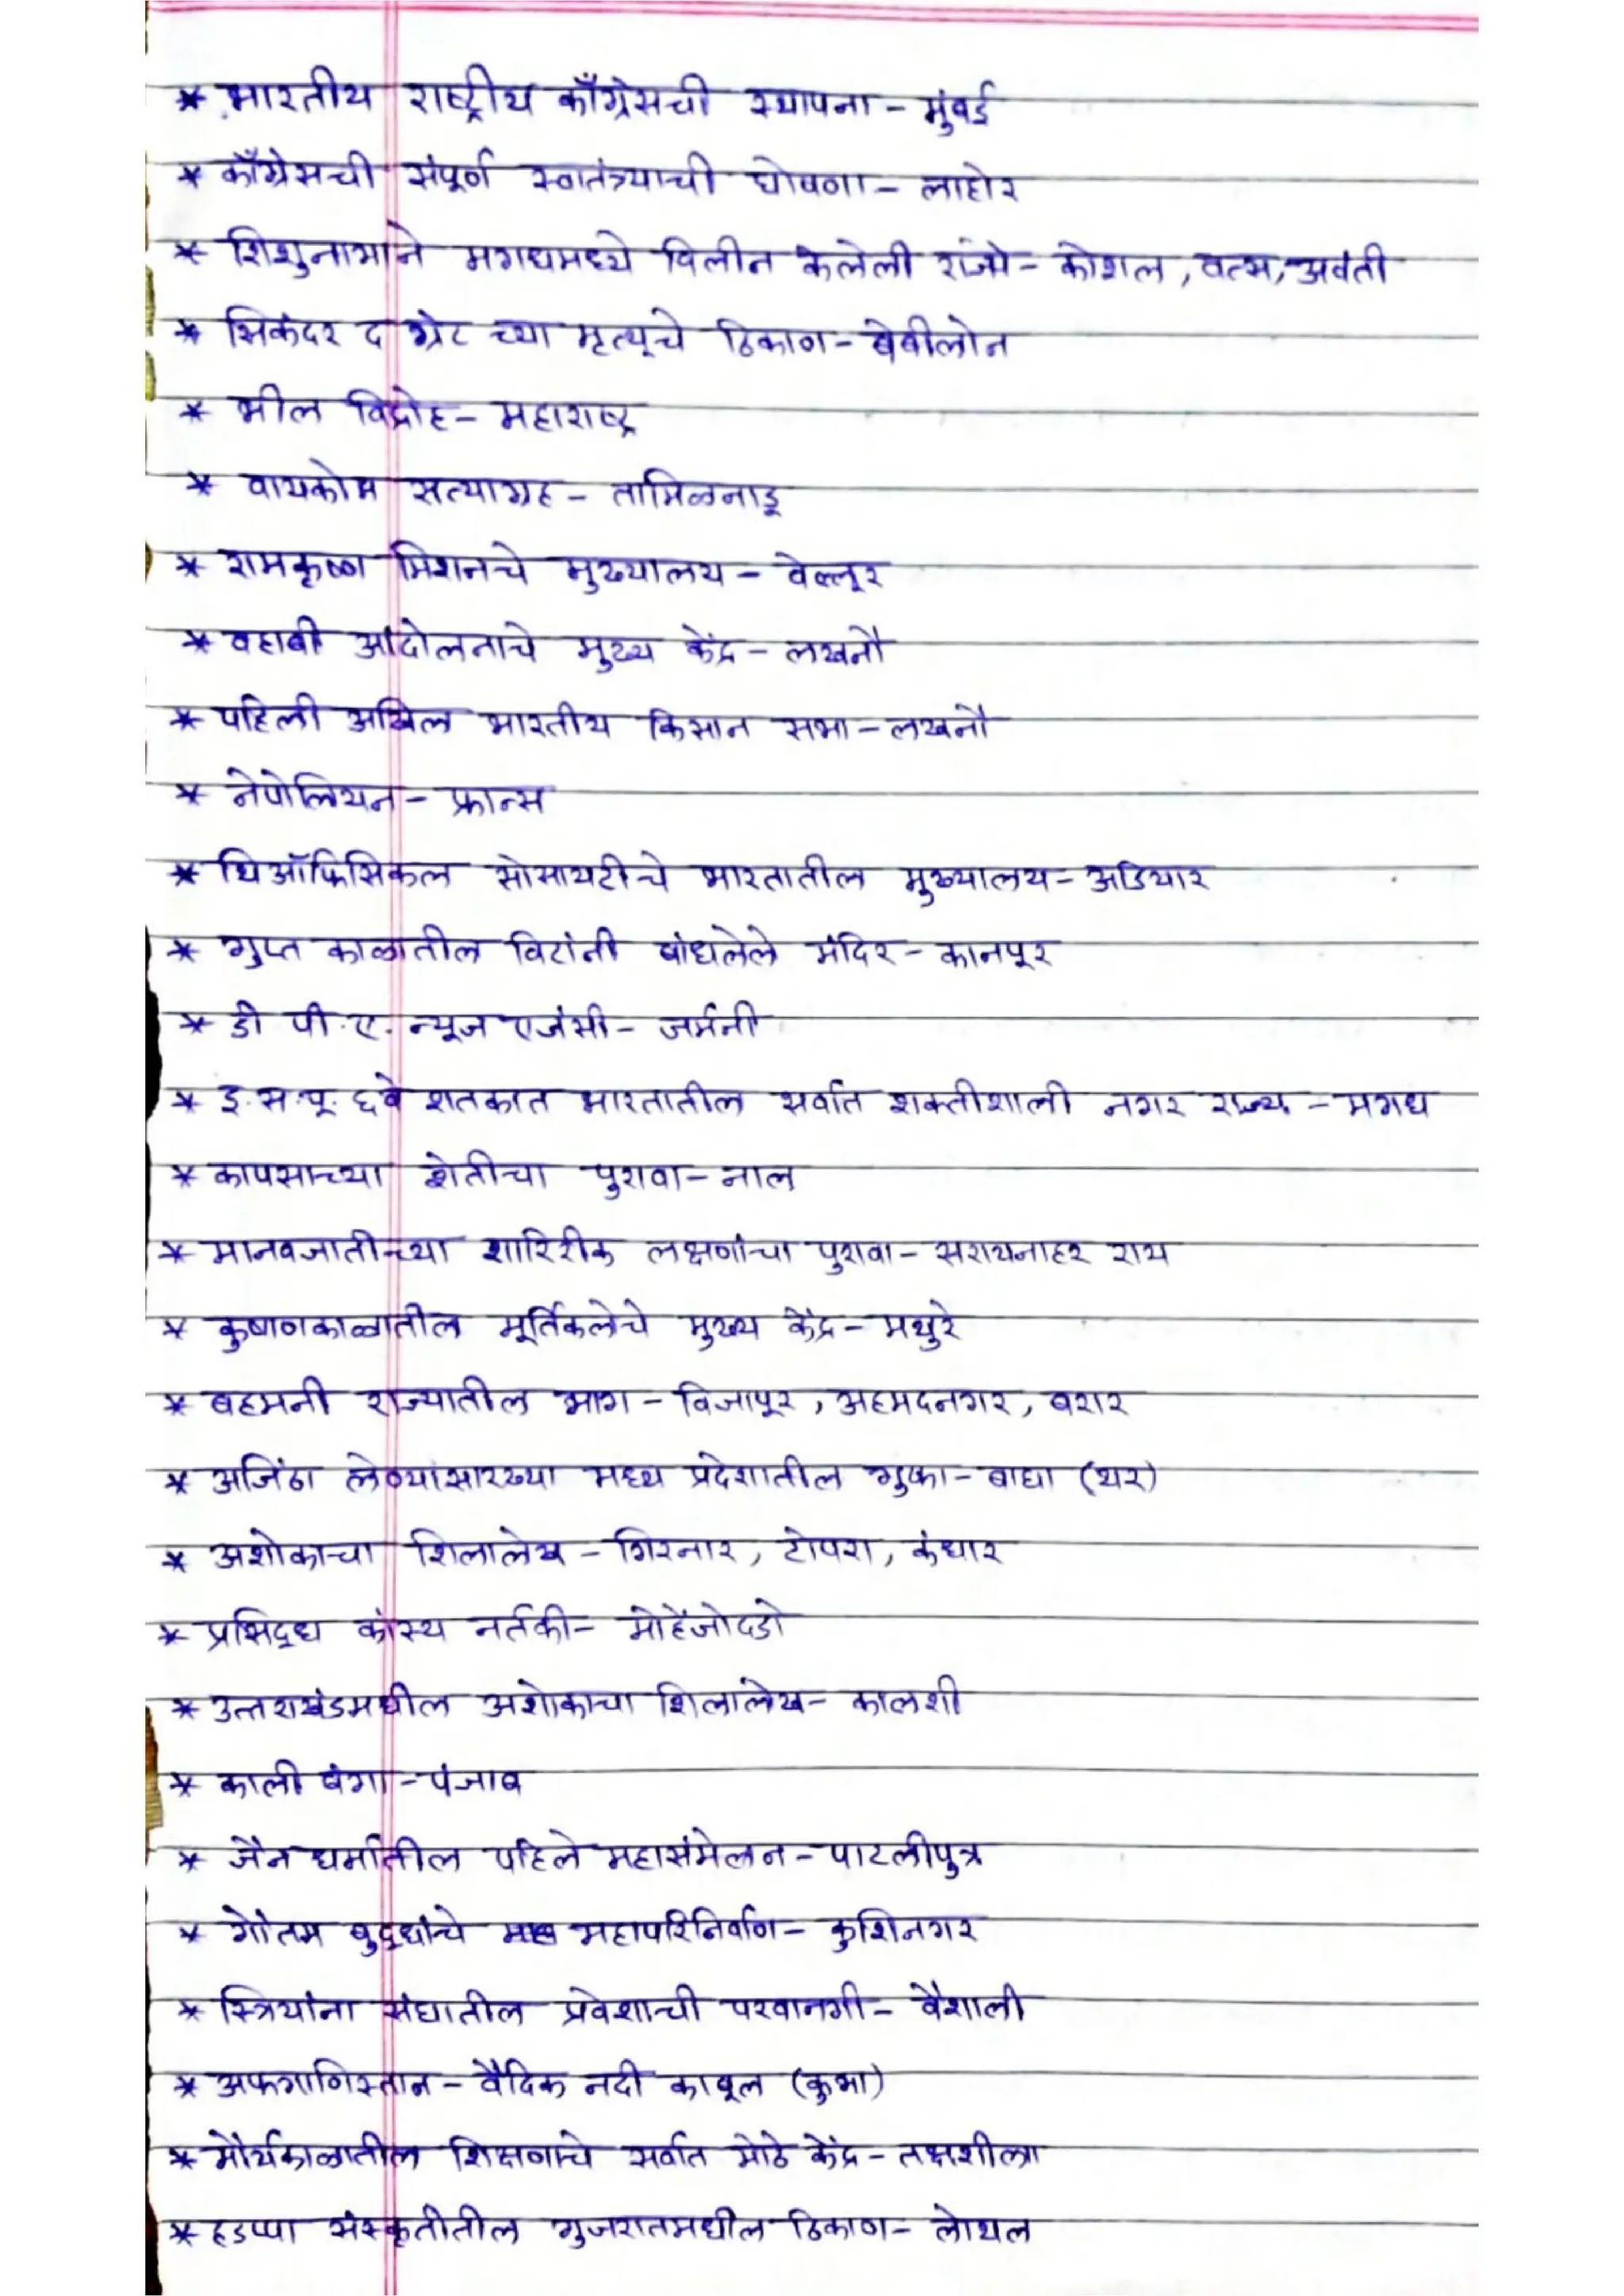 * भारतीय राष्ट्रीय काँग्रेसची स्थापना - मुंबई
* काँग्रेसची संपूर्ण स्वातंत्र्याची घोषणा - लाहोर
* शिशुनागाने मगधमध्ये विलीन केलेली राज्ये - कोशल, वत्स, अवंती
* सिकंदर द ग्रेट च्या मृत्यूचे ठिकाण - बेबीलोन
* भील विद्रोह - महाराष्ट्र
* वायकोम सत्याग्रह - तामिळनाडू
* रामकृष्ण मिशनचे मुख्यालय - वेल्लूर
* वहाबी आंदोलनाचे मुख्य केंद्र - लखनौ
* पहिली अखिल भारतीय किसान सभा - लखनौ
* नेपोलियन - फ्रान्स
* थिऑफिसिकल सोसायटीचे भारतातील मुख्यालय - अडियार
* गुप्त काळातील विटांनी बांधलेले मंदिर - कानपूर
* डी पी.ए. न्यूज एजंसी - जर्मनी
* इ.स.पू. ६वे शतकात भारतातील सर्वात शक्तीशाली नगर राज्य - मगध
* कापसाच्या शेतीचा पुरावा - नाल
* मानवजातीच्या शारिरीक लक्षणांचा पुरावा - सरायनाहर राय
* कुषाणकाळातील मूर्तिकलेचे मुख्य केंद्र - मथुरे
* बहमनी राज्यातील भाग - विजापूर, अहमदनगर, बरार
* अजिंठा लेण्यांसारख्या मध्य प्रदेशातील गुफा - बाघा (थर)
* अशोकाचा शिलालेख - गिरनार, टोपरा, कंधार
* प्रसिद्ध कांस्य नर्तकी - मोहेंजोदडो
* उत्तराखंडमधील अशोकाचा शिलालेख - कालशी
* काली बंगा - पंजाब
* जैन धर्मातील पहिले महासंमेलन - पाटलीपुत्र
* गौतम बुद्धांचे महापरिनिर्वाण - कुशिनगर
* स्त्रियांना संघातील प्रवेशाची परवानगी - वैशाली
* अफगाणिस्तान - वैदिक नदी काबूल (कुभा)
* मौर्यकाळातील शिक्षणाचे सर्वात मोठे केंद्र - तक्षशीला
* हडप्पा संस्कृतीतील गुजरातमधील ठिकाण - लोथल